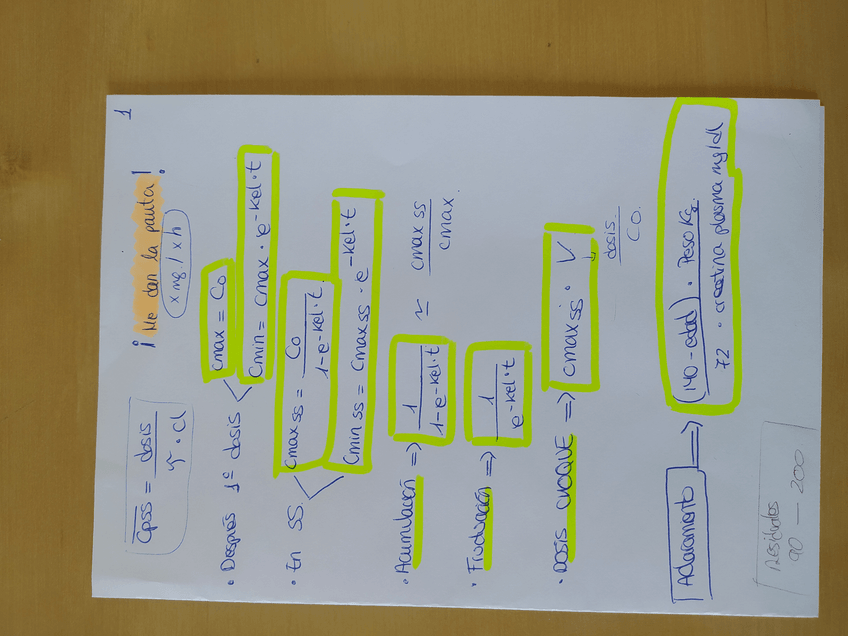 1
C̅p̅s̅s̅ = dosis / τ · Cl
¡ Me dan la pauta !
x mg / x h
• Después 1ª dosis
Cmax = C0
Cmin = Cmax · e^-kel·t
• En SS.
Cmax ss = C0 / 1-e^-kel·t
Cmin ss = Cmax ss · e^-kel·t
• Acumulación ⇒ 1 / 1-e^-kel·t ≈ Cmax ss / Cmax.
• Fluctuación ⇒ 1 / e^-kel·t
• DOSIS CHOQUE ⇒ Cmax ss · V
dosis / C0.
Aclaramiento ⇒ (140-edad) · Peso Kg / 72 · creatina plasma mg/dl
90 — 200